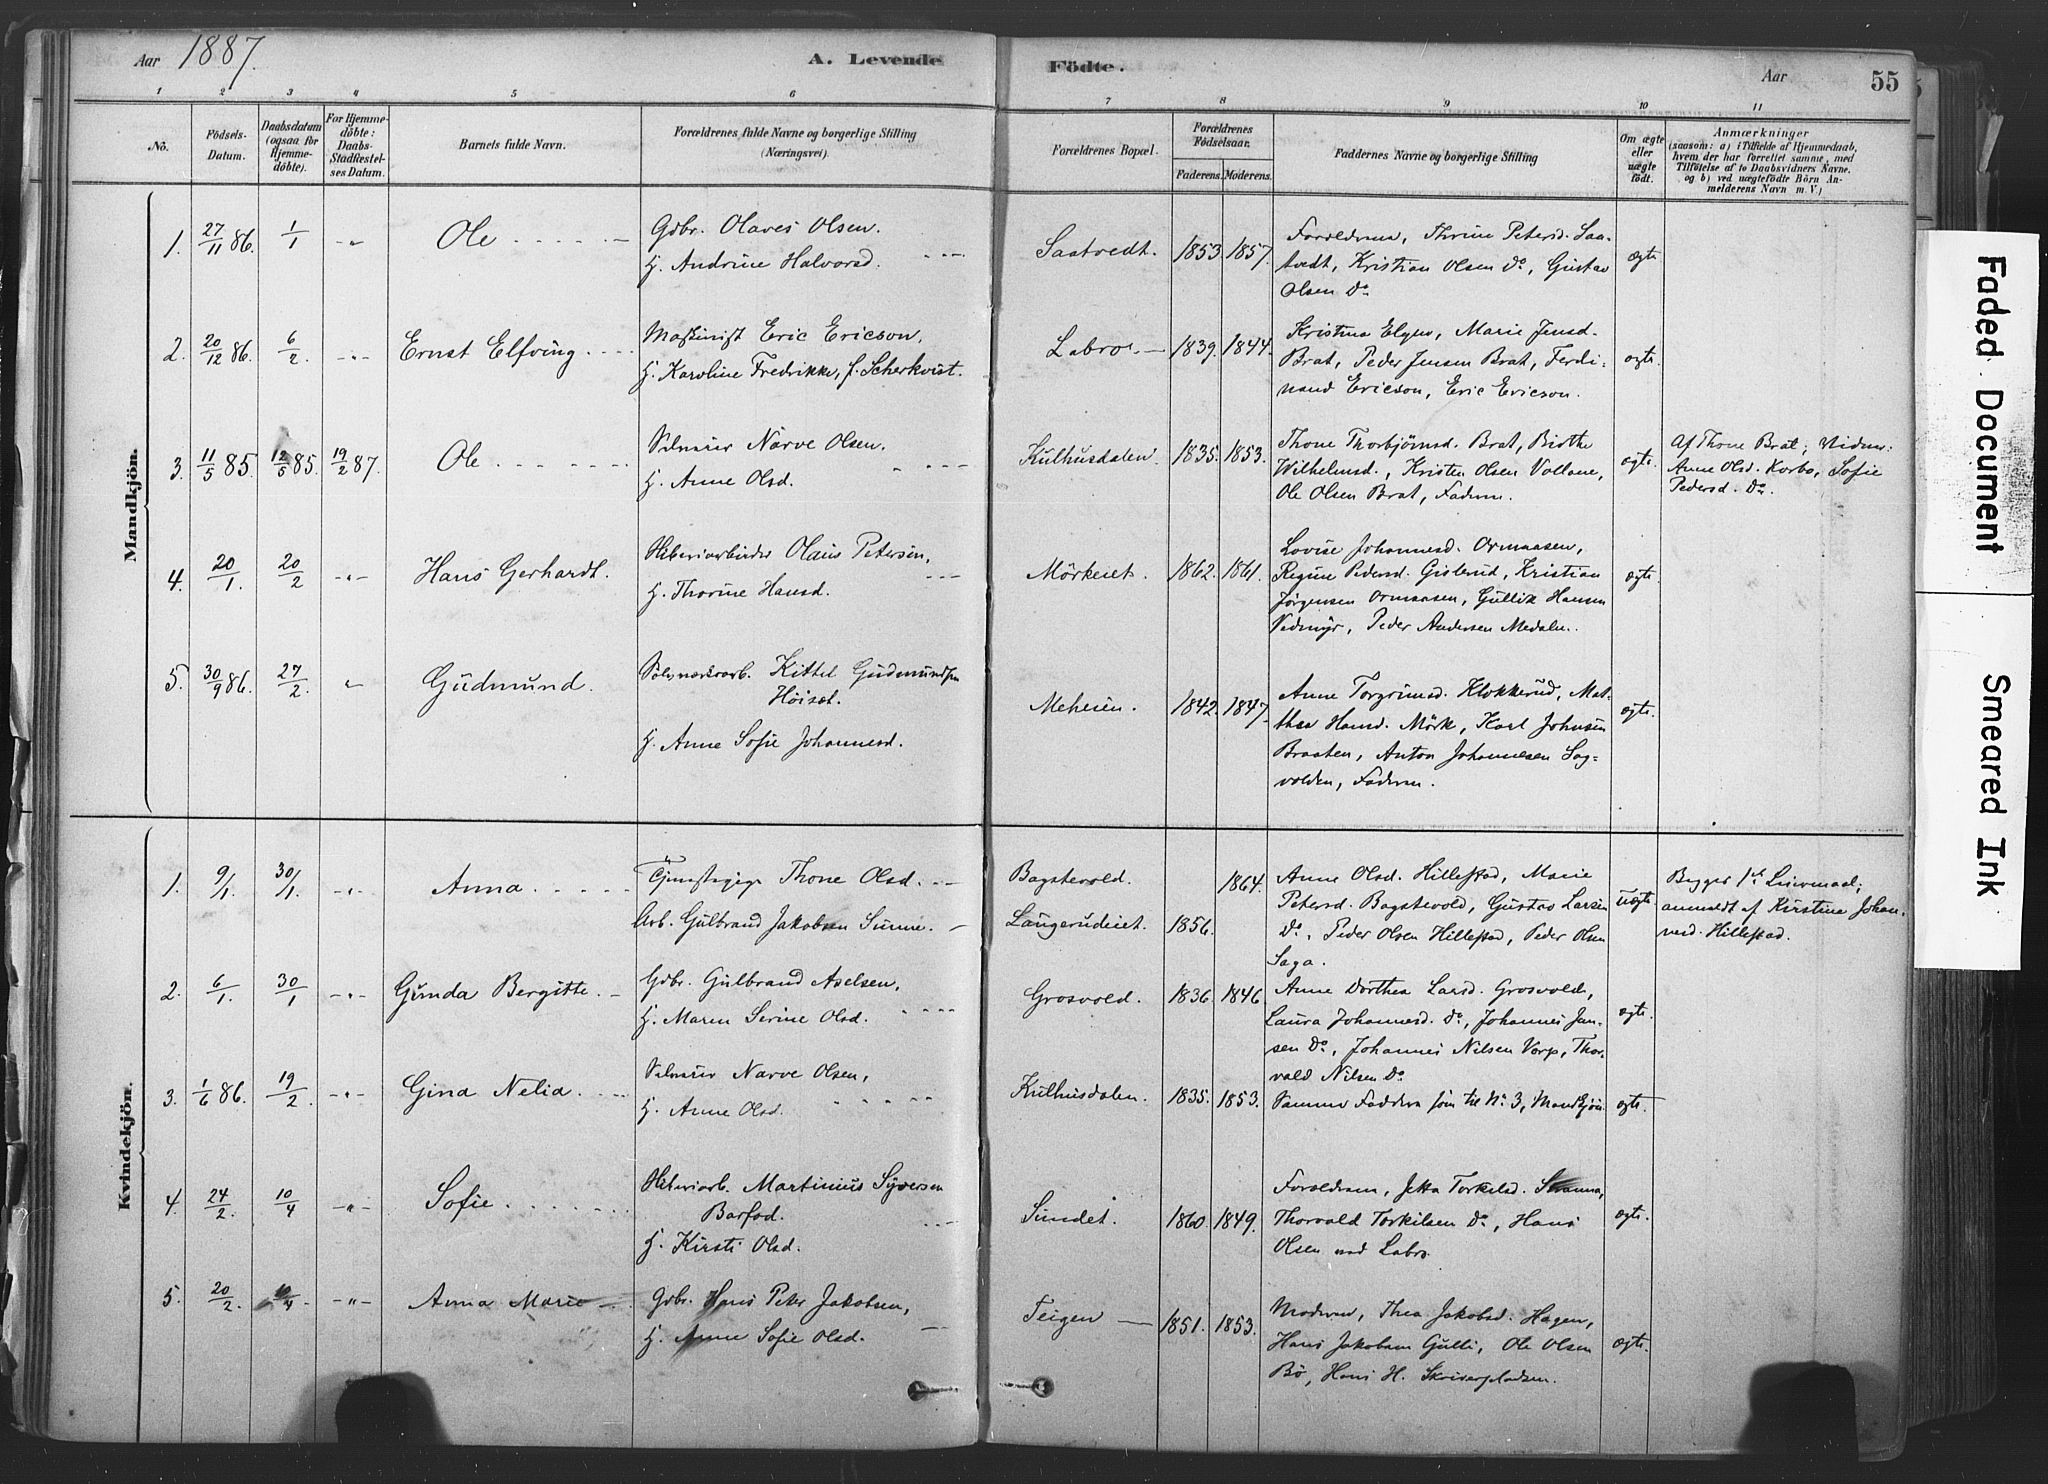 Aar 1887.
A. Levende
Födte.
Aar
55
1 2 3 4 5 6 7 8 9 10 11
No.
Födsels-
Datum.
Daabsdatum
(ogsaa for
Hjemme-
döbte).
For Hjemme-
döbte:
Daabs-
Stadfæstel-
ses Datum.
Barnets fulde Navn.
Forældrenes fulde Navne og borgerlige Stilling
(Næringsvei).
Forældrenes Bopæl.
Forældrenes
Födselsaar.
Faderens. Moderens.
Faddernes Navne og borgerlige Stilling
Om ægte
eller
uægte
födt.
Anmærkninger
(saasom: a) i Tilfælde af Hjemmedaab,
hvem der har forrettet samme, med
Tilföielse af to Daabsvidners Navne.
og b) ved uægtefödte Börn An-
melderens Navn m. V.)
Mandkjön.
1. 27/11 86. 1/1 -„- Ole
Gdbr. Olaves Olsen.
H. Andrine Halvorsd.
Saatvedt. 1853. 1857.
Forældrene, Thrine Petersd. Saa-
tvedt, Kristian Olsen Do, Gustav
Olsen Do
ægte
2. 20/12 86. 6/2 -„- Ernst Elfving
Maskinist Eric Ericson.
H. Karoline Fredrikke, f. Scherkvist.
Labro. 1839. 1844.
Kristina, Marie Jensd.
Brat, Peder Jensen Brat, Ferdi-
nand Ericson, Eric Ericson.
ægte.
3. 11/5 85. 12/5 85. 19/2 87. Ole
Narve Olsen.
H. Anne Olsd.
Kulhusdalen. 1835. 1853.
Thone Thorbjørnsd. Brat, Birthe
Wilhelmsd., Kristen Olsen Vollane,
Ole Olsen Brat, Faderen.
ægte.
Af Thone Brat; Vidner:
Anne Olsd. Korbo, Sofie
Pedersd. Do.
4. 20/1. 20/2 -„- Hans Gerhardt.
Hiberiarbeider Olaus Petersen,
H. Thorine Hansd.
Mörkeiet. 1862. 1861.
Lovise Johannesd. Ormaasen,
Regine Pedersd. Gislerud, Kristian
Jørgensen Ormaasen, Gullik Hansen
Vedmyr, Peder Andersen Medalen.
ægte
5. 30/9 86. 27/2 „ Gudmund.
Sølvværksarb. Kittel Gudmundsen
Höiset.
H. Anne Sofie Johannesd.
Meheien. 1842. 1847.
Anne Torgrimsd. Klokkerud, Mat-
thea Hansd. Mörk, Karl Johnsen
Braaten, Anton Johannesen Sag-
volden, Faderen.
ægte.
Kvindekjön.
1. 9/1. 30/1. -„- Anna
Tjenestepige Thone Olsd.
Arb. Gulbrand Jakobsen Sunne.
Bagstevold. 1864.
Laugerudeiet. 1856.
Anne Olsd. Hillestad, Marie
Petersd. Bagstevold, Gustav Larsen
Do, Peder Olsen Hillestad, Peder Olsen
Saga.
uægte.
Begges 1ste Leiermaal;
anmeldt af Kirstine Johan-
nesd. Hillestad.
2. 6/1. 30/1 -„- Gunda Bergitte.
Gdbr. Gulbrand Axelsen,
H. Maren Serine Olsd.
Grosvold. 1836. 1846
Anne Dorthea Larsd. Grosvold,
Laura Johannesd. Do, Johannes Jan-
sen Do, Johannes Nilsen Vorp, Thor-
vald Nilsen Do
ægte.
3. 1/6 86. 19/2 -„- Gina Nelia
Narve Olsen,
H. Anne Olsd.
Kulhusdalen. 1835. 1853.
Samme Faddere som til No 3, Mandkjön.
ægte.
4. 24/2. 10/4 -„- Sofie
Hiberiarb. Martinius Syversen
Barfod.
H. Kirsti Olsd.
Sundet. 1860. 1849.
Forældrene, Jetta Torkilsd.
Thorvald Torkilsen Do, Hans
Olsen ved Labro.
ægte.
5. 20/2. 10/4 -„- Anna Marie
Gdbr. Hans Peter Jakobsen,
H. Anne Sofie Olsd.
Teigen 1851. 1853.
Moderen, Thea Jakobsd. Hagen,
Hans Jakobsen Gulli, Ole Olsen
Bö, Hans H. Skriverpladsen.
ægte.
Faded Document
Smeared Ink